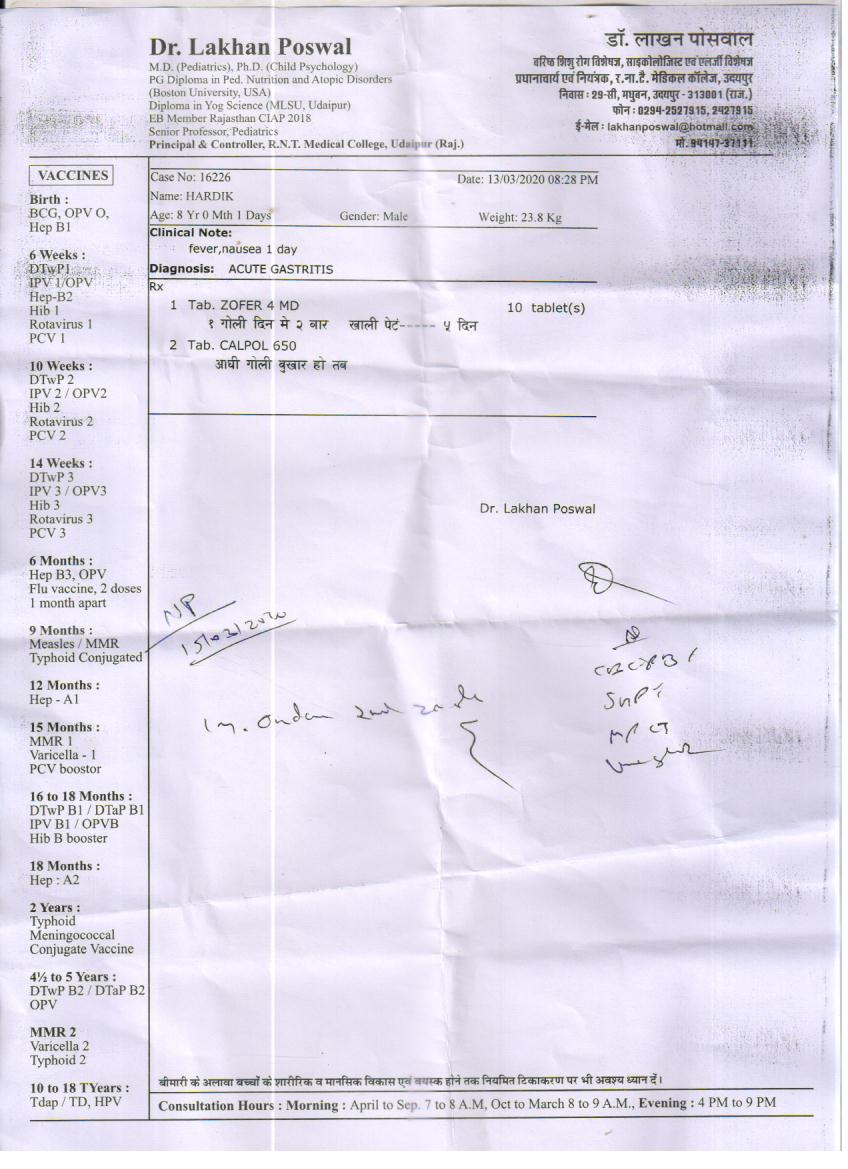 Dr. Lakhan Poswal
M.D. (Pediatrics), Ph.D. (Child Psychology)
PG Diploma in Ped. Nutrition and Atopic Disorders
(Boston University, USA)
Diploma in Yog Science (MLSU, Udaipur)
EB Member Rajasthan CIAP 2018
Senior Professor, Pediatrics
Principal & Controller, R.N.T. Medical College, Udaipur (Raj.)
डॉ. लाखन पोसवाल
वरिष्ठ शिशु रोग विशेषज्ञ, साइकोलोजिस्ट एवं एलर्जी विशेषज्ञ
प्रधानाचार्य एवं नियंत्रक, र.ना.टै. मेडिकल कॉलेज, उदयपुर
निवास : 29-सी, मधुबन, उदयपुर - 313001 (राज.)
फोन : 0294-2527915, 2427915
ई-मेल : lakhanposwal@hotmail.com
मो. 94147-37111
VACCINES
Birth :
BCG, OPV O,
Hep B1
6 Weeks :
DTwP1
IPV 1/OPV
Hep-B2
Hib 1
Rotavirus 1
PCV 1
10 Weeks :
DTwP 2
IPV 2 / OPV2
Hib 2
Rotavirus 2
PCV 2
14 Weeks :
DTwP 3
IPV 3 / OPV3
Hib 3
Rotavirus 3
PCV 3
6 Months :
Hep B3, OPV
Flu vaccine, 2 doses
1 month apart
9 Months :
Measles / MMR
Typhoid Conjugated
12 Months :
Hep - A1
15 Months :
MMR 1
Varicella - 1
PCV boostor
16 to 18 Months :
DTwP B1 / DTaP B1
IPV B1 / OPVB
Hib B booster
18 Months :
Hep : A2
2 Years :
Typhoid
Meningococcal
Conjugate Vaccine
4½ to 5 Years :
DTwP B2 / DTaP B2
OPV
MMR 2
Varicella 2
Typhoid 2
10 to 18 TYears :
Tdap / TD, HPV
Case No: 16226 Date: 13/03/2020 08:28 PM
Name: HARDIK
Age: 8 Yr 0 Mth 1 Days Gender: Male Weight: 23.8 Kg
Clinical Note:
fever,nausea 1 day
Diagnosis: ACUTE GASTRITIS
Rx
1 Tab. ZOFER 4 MD 10 tablet(s)
१ गोली दिन मे २ वार खाली पेटं----- ५ दिन
2 Tab. CALPOL 650
आधी गोली बुखार हो तब
Dr. Lakhan Poswal
NP
15/03/2020
बीमारी के अलावा बच्चों के शारीरिक व मानसिक विकास एवं वयस्क होने तक नियमित टिकाकरण पर भी अवश्य ध्यान दें।
Consultation Hours : Morning : April to Sep. 7 to 8 A.M, Oct to March 8 to 9 A.M., Evening : 4 PM to 9 PM